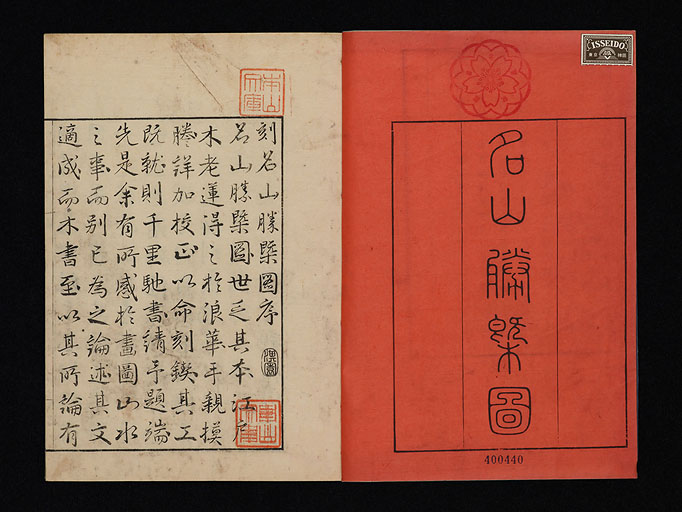 ISSEIDO
名山勝槩圖
400440
本山文庫
刻名山勝槩圖序
名山勝槩圖世乏其本江府
木老蓮得之於浪華手親摸
謄詳加校正以命刻鍥其工
既就則千里馳書請予題端
先是余有所感於畫圖山水
之事而別已為之論述其文
適成而木書至以其所論有